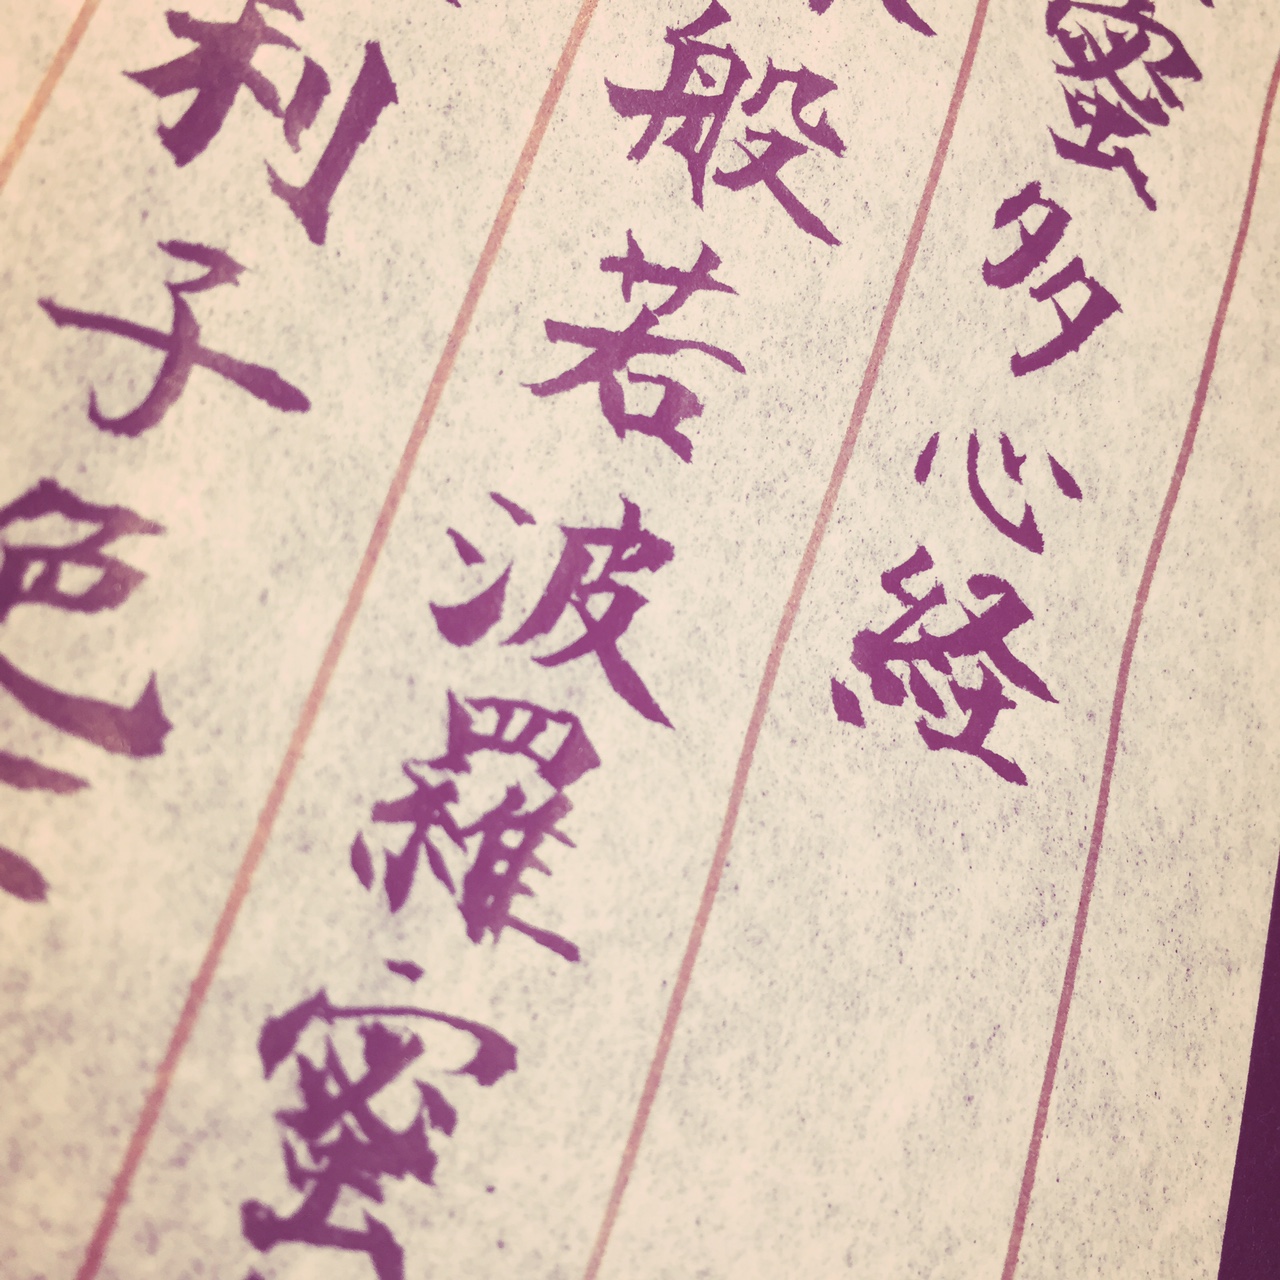 蜜多心經
般若波羅蜜
利子色